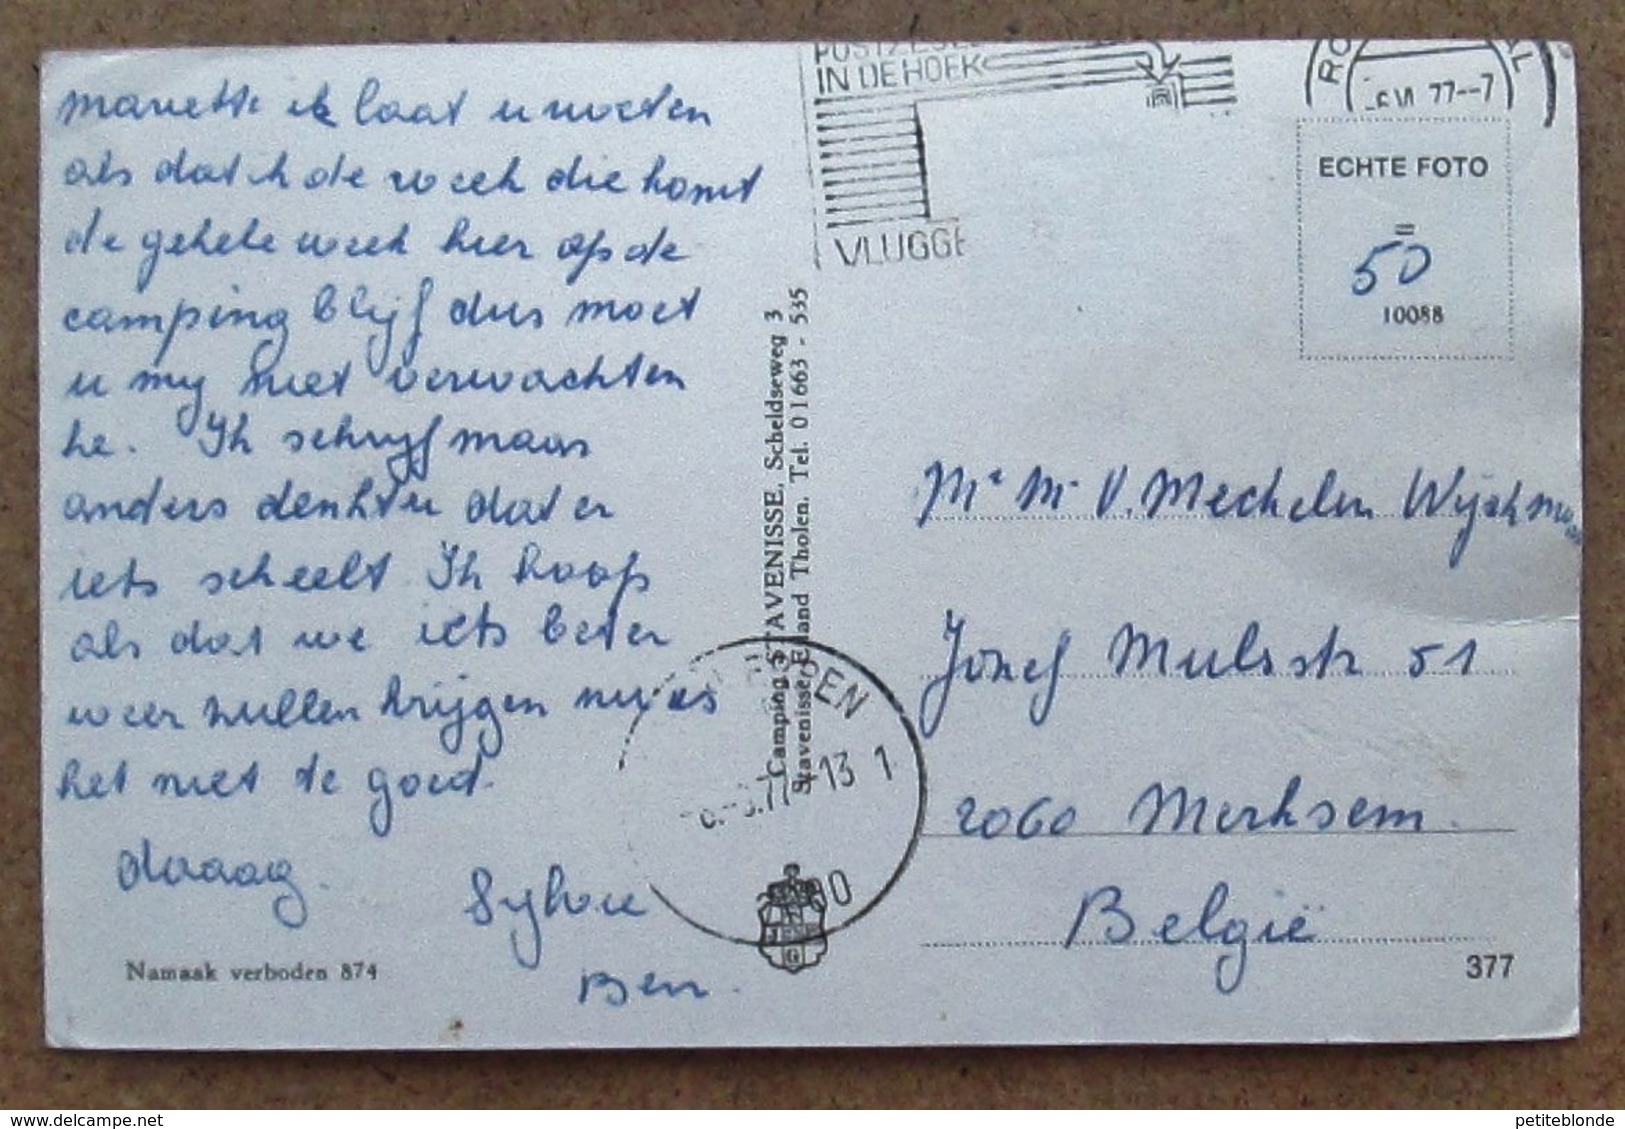 Mariette ik laat u weeten
als dat ik de week die komt
de gehele week hier op de
camping blijf dus moet
u mij niet verwachten
he. Ik schrijf maar
anders denkt u dat er
iets scheelt. Ik hoop
als dat we iets beter
weer zullen krijgen nu is
het niet te goed.
daaag.
Sylvie
Ben.
Namaak verboden 874
Camping STAVENISSE, Scheldseweg 3
Stavenisse, Eiland Tholen. Tel. 01663 - 535
POSTZEGEL
IN DE HOEK
VLUGGE
77--7
ECHTE FOTO
=
50
10088
-13 1
Mr M. V. Mechelen
Jozef Mulsstr 51
2060 Merksem.
België
377
petiteblonde